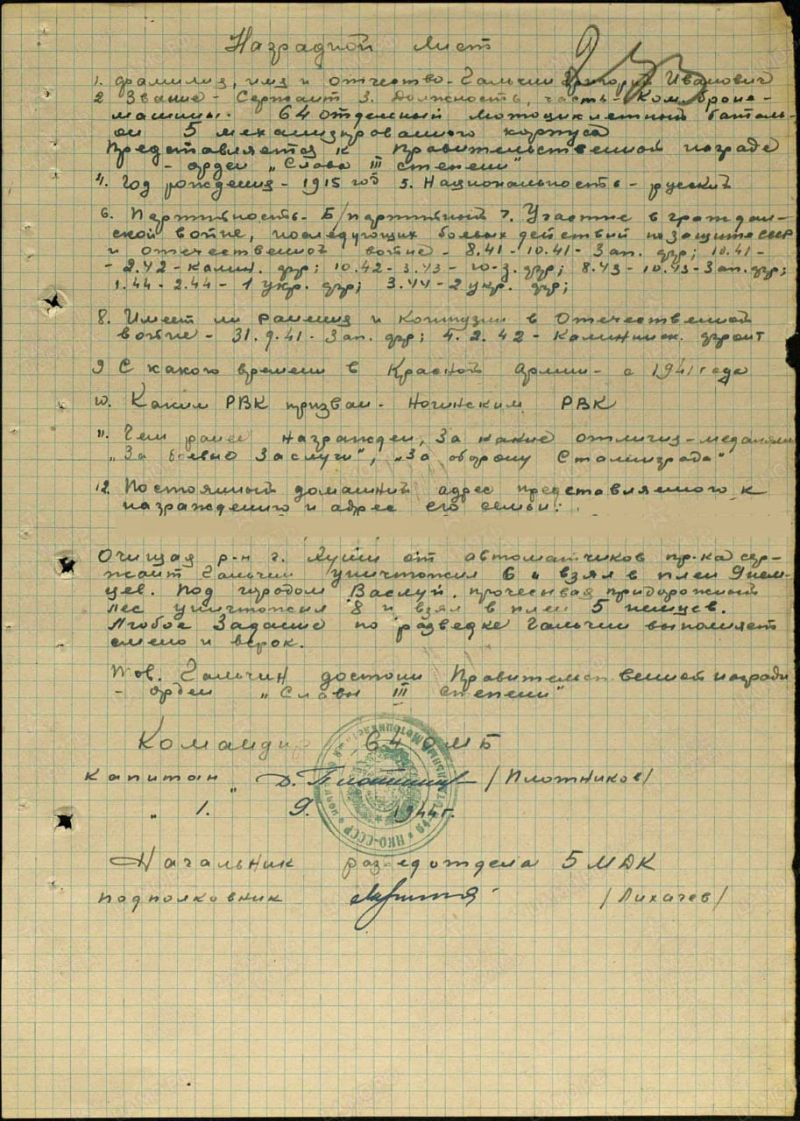 Наградной лист
1. Фамилия, имя и отчество - Гальчин Григорий Иванович
2 Звание - Сержант 3. Должность, часть - Ком. броне-
машины. 64 отдельный мотоциклетный баталь-
он 5 механизированного корпуса
Представляется к правительственной награде
- орден "Слава III степени"
4. Год рождения - 1915 год 5. Национальность - русский
6. Партийность - Б/партийный 7. Участие в граждан-
ской войне, последующих боевых действий по защите СССР
и отечественной войне - 8.41 - 10.41 - Зап. фр; 10.41 -
- 2.42 - Калин. фр; 10.42 - 3.43 - Ю-З. фр; 8.43 - 10.43 - Зап. фр;
1.44 - 2.44 - 1 укр. фр; 3.44 - 2 укр. фр;
8. Имеет ли ранения и контузии в Отечественной
войне - 31.9.41 - Зап. фр; 4.2.42 - Калининск. фронт
9 С какого времени в Красной Армии - с 1941 года
10. Каким РВК призван - Ногинским РВК
11. Чем ранее награжден, за какие отличия - медалями
"За боевые заслуги", "За оборону Сталинграда"
12. Постоянный домашний адрес представляемого к
награждению и адрес его семьи:
Очищая р-н г. Хуши от автоматчиков пр-ка сер-
жант Гальчин уничтожил 6 и взял в плен 9 нем-
цев. Под городом Васлуй, прочесывая придорожный
лес уничтожил 8 и взял в плен 5 немцев.
Любое задание по разведке Гальчин выполняет
смело и в срок.
Тов. Гальчин достоин Правительственной награды
- орден "Славы III степени"
Командир 64 ОМБ
капитан Д. Плотников /Плотников/
" 1. " 9. 1944 г.
НКО-СССР
Начальник разведотдела 5 МДК
подполковник /Лихачев/